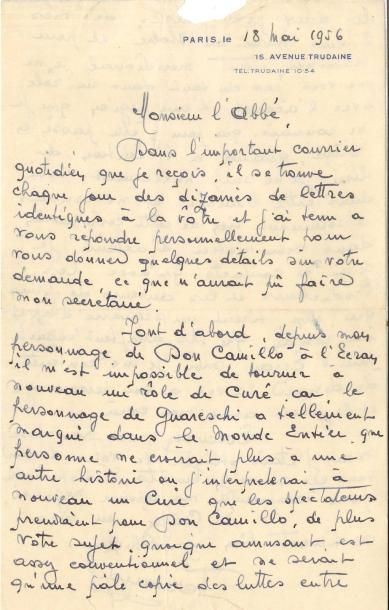 PARIS, le 18 Mai 1956
15, AVENUE TRUDAINE
TEL. TRUDAINE 10-54
Monsieur l'Abbé,
Dans l'important courrier
quotidien que je reçois, il se trouve
chaque jour des dizaines de lettres
identiques à la vôtre et j'ai tenu à
vous répondre personnellement pour
vous donner quelques détails sur votre
demande ce que n'aurait pû faire
mon secrétaire.
Tout d'abord, depuis mon
personnage de Don Camillo à l'Ecran
il m'est impossible de tourner à
nouveau un rôle de Curé car le
personnage de Guareschi a tellement
marqué dans le Monde Entier, que
personne ne croirait plus à une
autre histoire où j'interpréterai à
nouveau un Curé que les spectateurs
prendraient pour Don Camillo, de plus
votre sujet quoique amusant est
assez conventionnel et ne serait
qu'une pâle copie des luttes entre